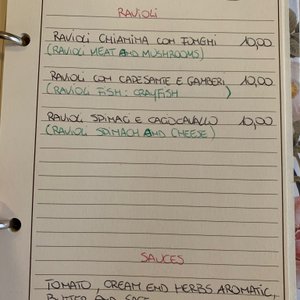 RAVIOLI
RAVIOLI CHIAMINA CON FUNGHI 10,00
(RAVIOLI MEAT AND MUSHROOMS)
RAVIOLI CON CAPESANTE E GAMBERI 10,00
(RAVIOLI FISH: CRAYFISH )
RAVIOLI SPINAC E CACIOCAVALLO 10,00
(RAVIOLI SPINACH AND CHEESE)
SAUCES
TOMATO, CREAM END HERBS AROMATIC,
BUTTER AND